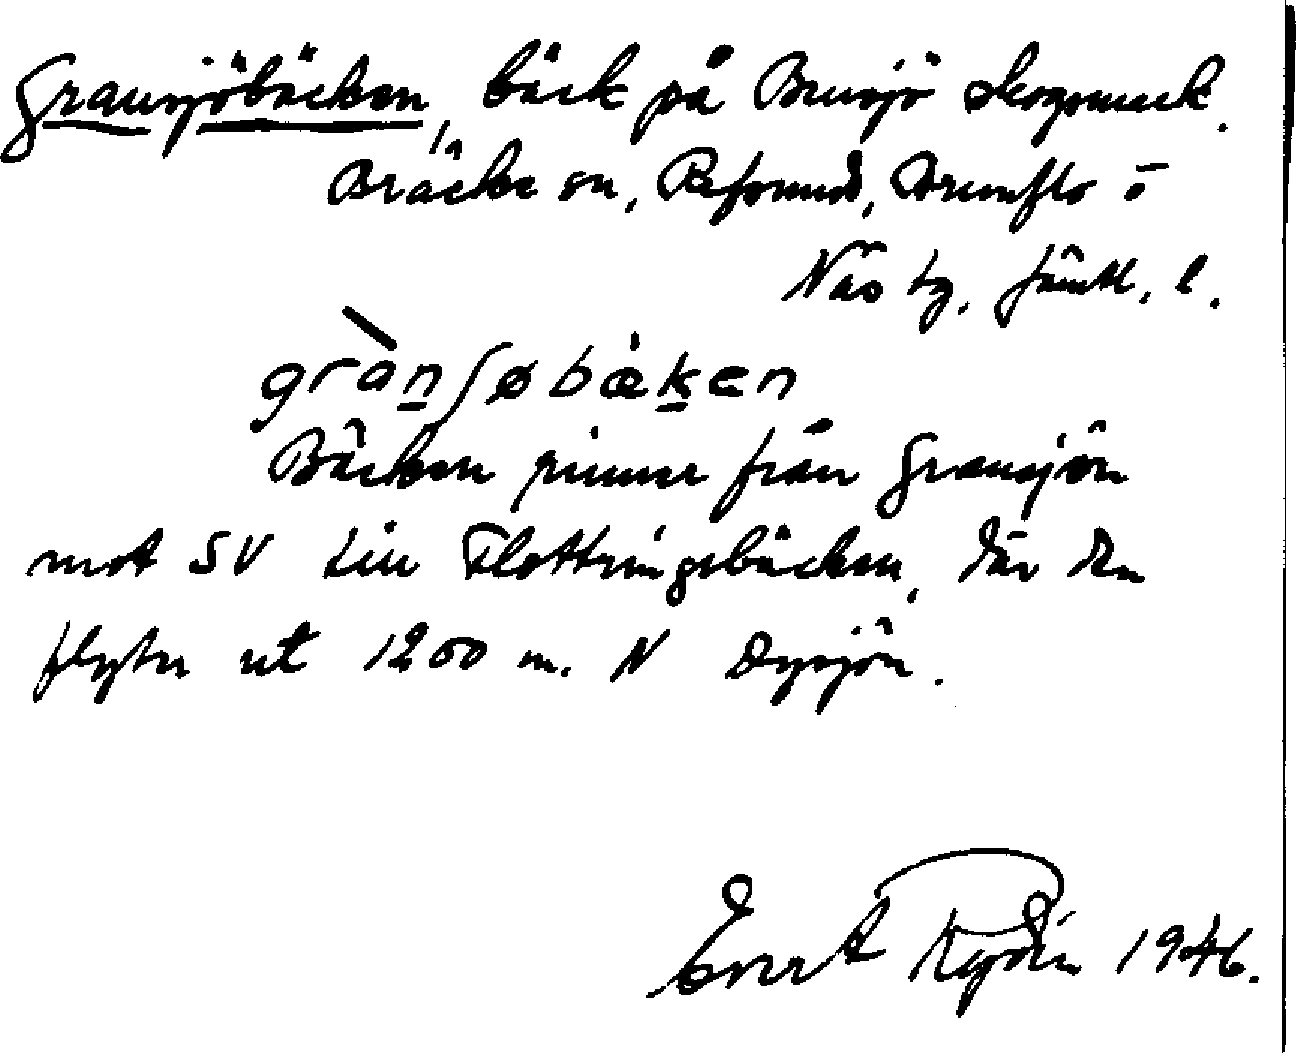 Gransjöbäcken, bäck på Bensjö skogsmark.
Bräcke sn, Refsunds, Brunflo o
Näs tg. Jämtl. l.
grànʃøbæken
Bäcken rinner från Gransjön
mot SV till Flottringsbäcken, där den
flyter ut 1200 m. N Dysjön.
Evert Rydén 1946.